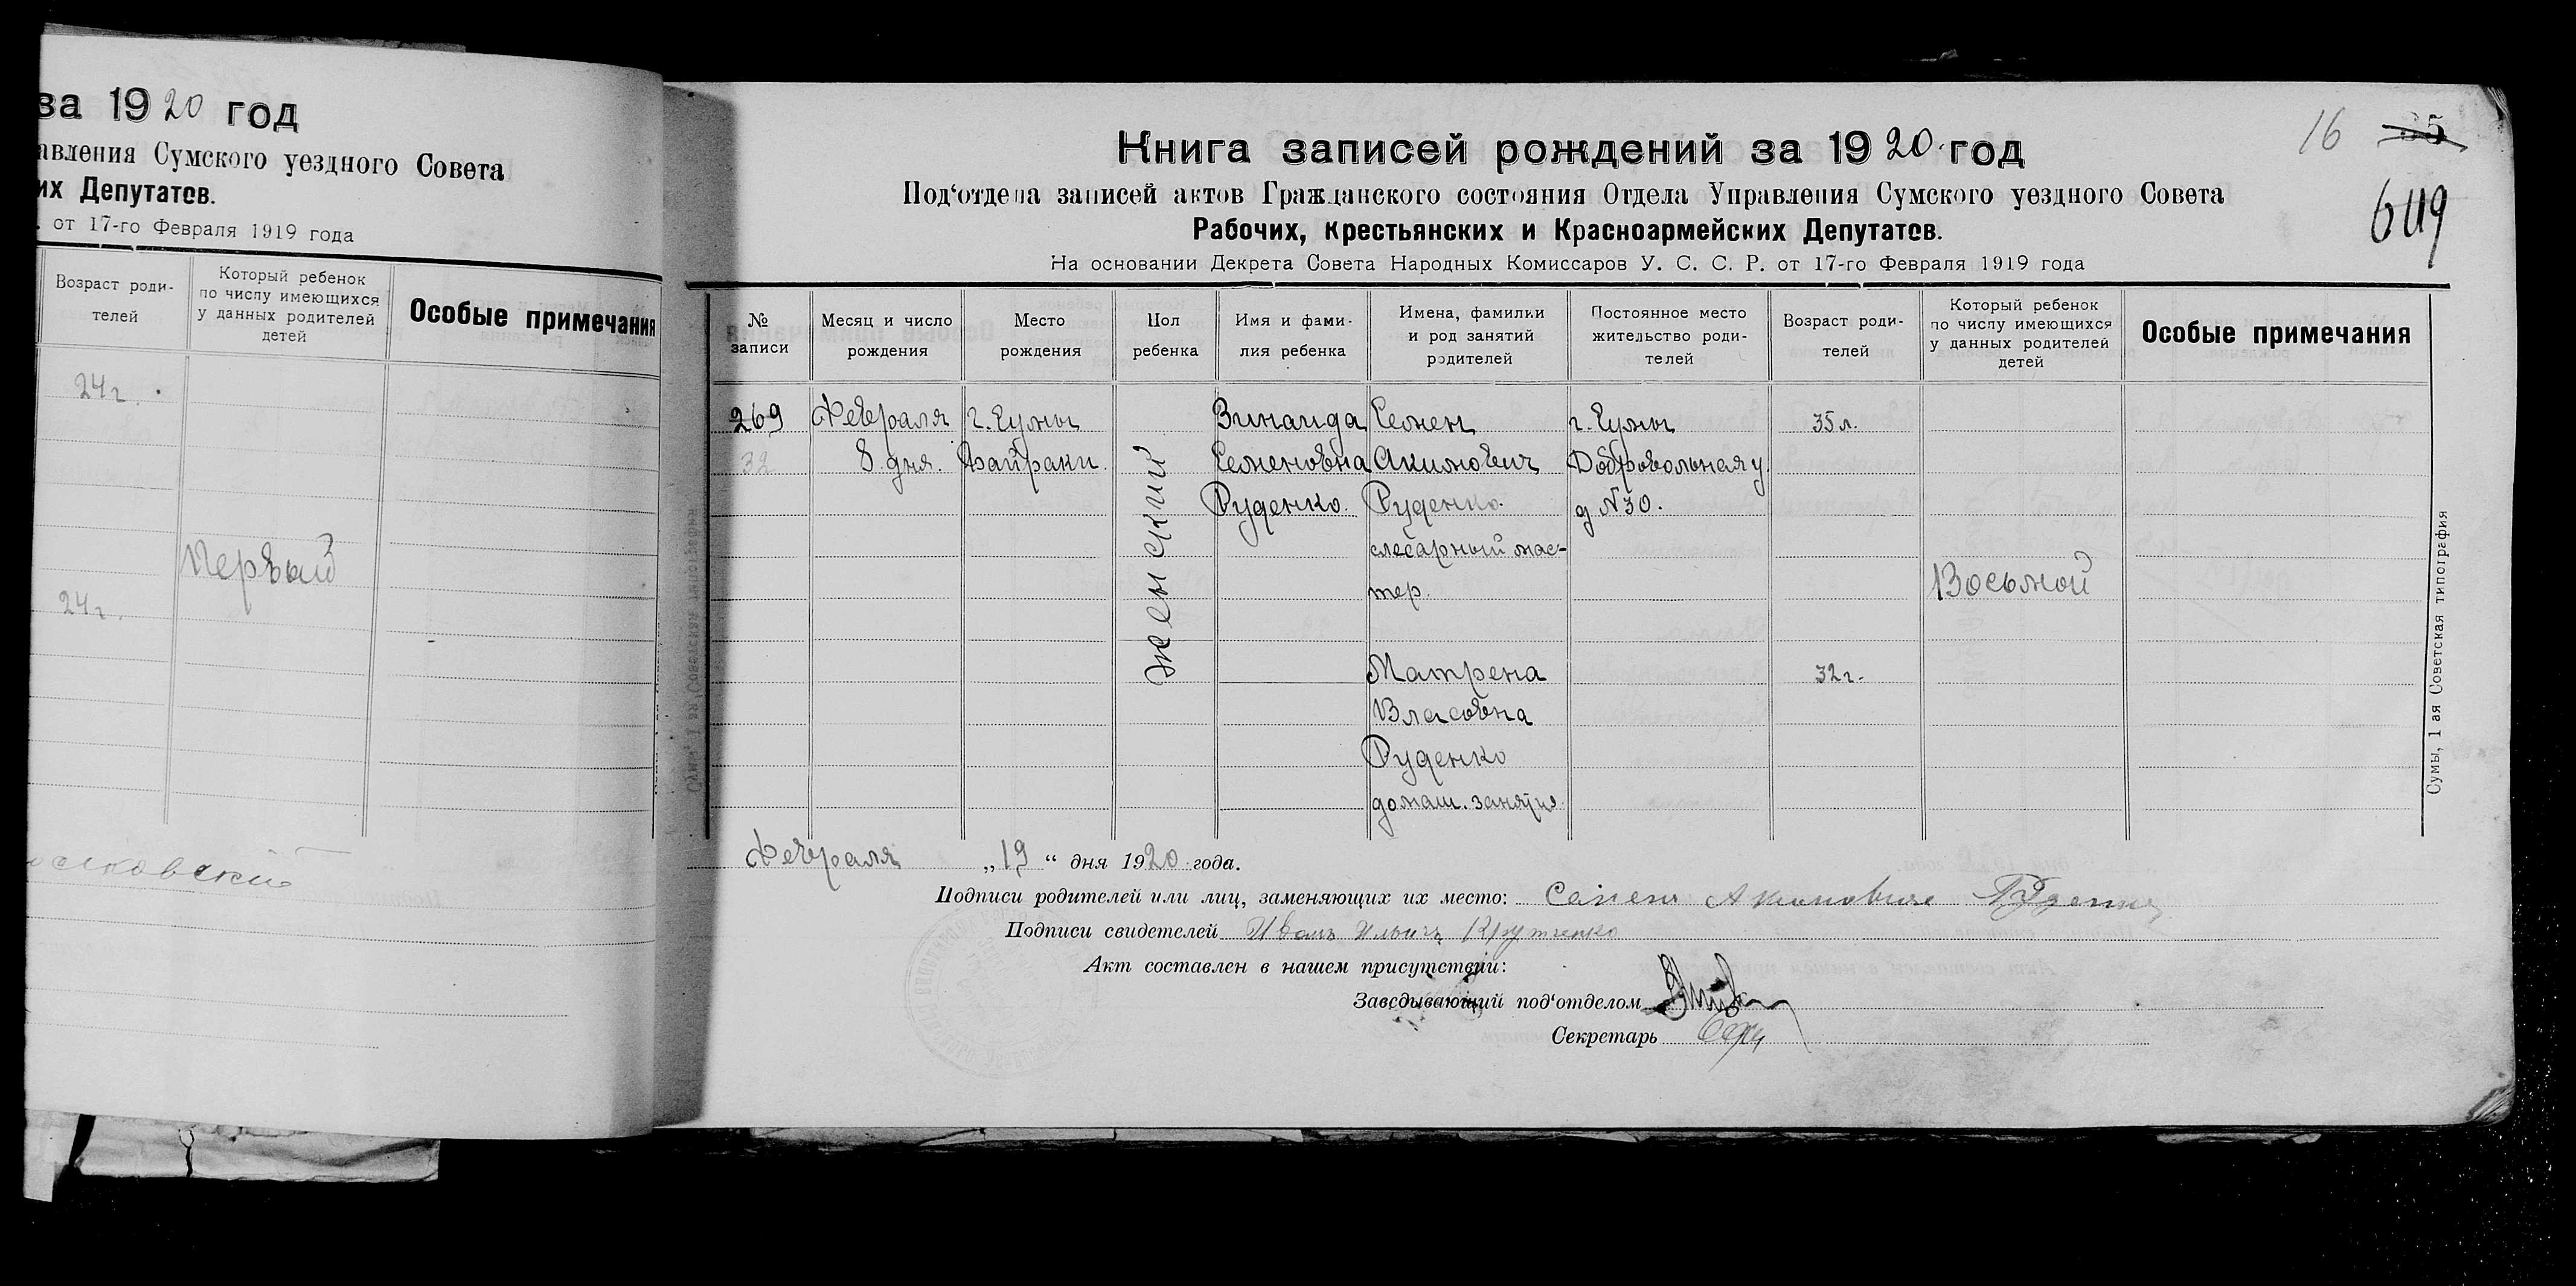 за 1920 год
авления Сумского уездного Совета
их Депутатов.
. от 17-го Февраля 1919 года
Возраст роди-
телей
Который ребенок
по числу имеющихся
у данных родителей
детей
Особые примечания
24 г.
Первый
24 г.
16
35
649
Книга записей рождений за 1920 год
Под‘отдела записей актов Гражданского состояния Отдела Управления Сумского уездного Совета
Рабочих, Крестьянских и Красноармейских Депутатов.
На основании Декрета Совета Народных Комиссаров У. С. С. Р. от 17-го Февраля 1919 года
№
записи
Месяц и число
рождения
Место
рождения
Пол
ребенка
Имя и фами-
лия ребенка
Имена, фамилии
и род занятий
родителей
Постоянное место
жительство роди-
телей
Возраст роди-
телей
Который ребенок
по числу имеющихся
у данных родителей
детей
Особые примечания
269
32
Февраля
8 дня.
г. Сумы
Байраки.
женский
Зинаида
Семеновна
Руденко.
Семен
Акимович
Руденко.
слесарный мас-
тер.
Матрена
Власовна
Руденко
домаш. занятия
г. Сумы
Добровольная у.
д №30.
35 л.
32 г.
Восьмой
Сумы, 1 ая Советская типография
Февраля „19“ дня 1920 года.
Подписи родителей или лиц, заменяющих их место: Семен Акимович Руденко
Подписи свидетелей Иван Ильич
Акт составлен в нашем присутствии:
Заведывающий под‘отделом
Секретарь